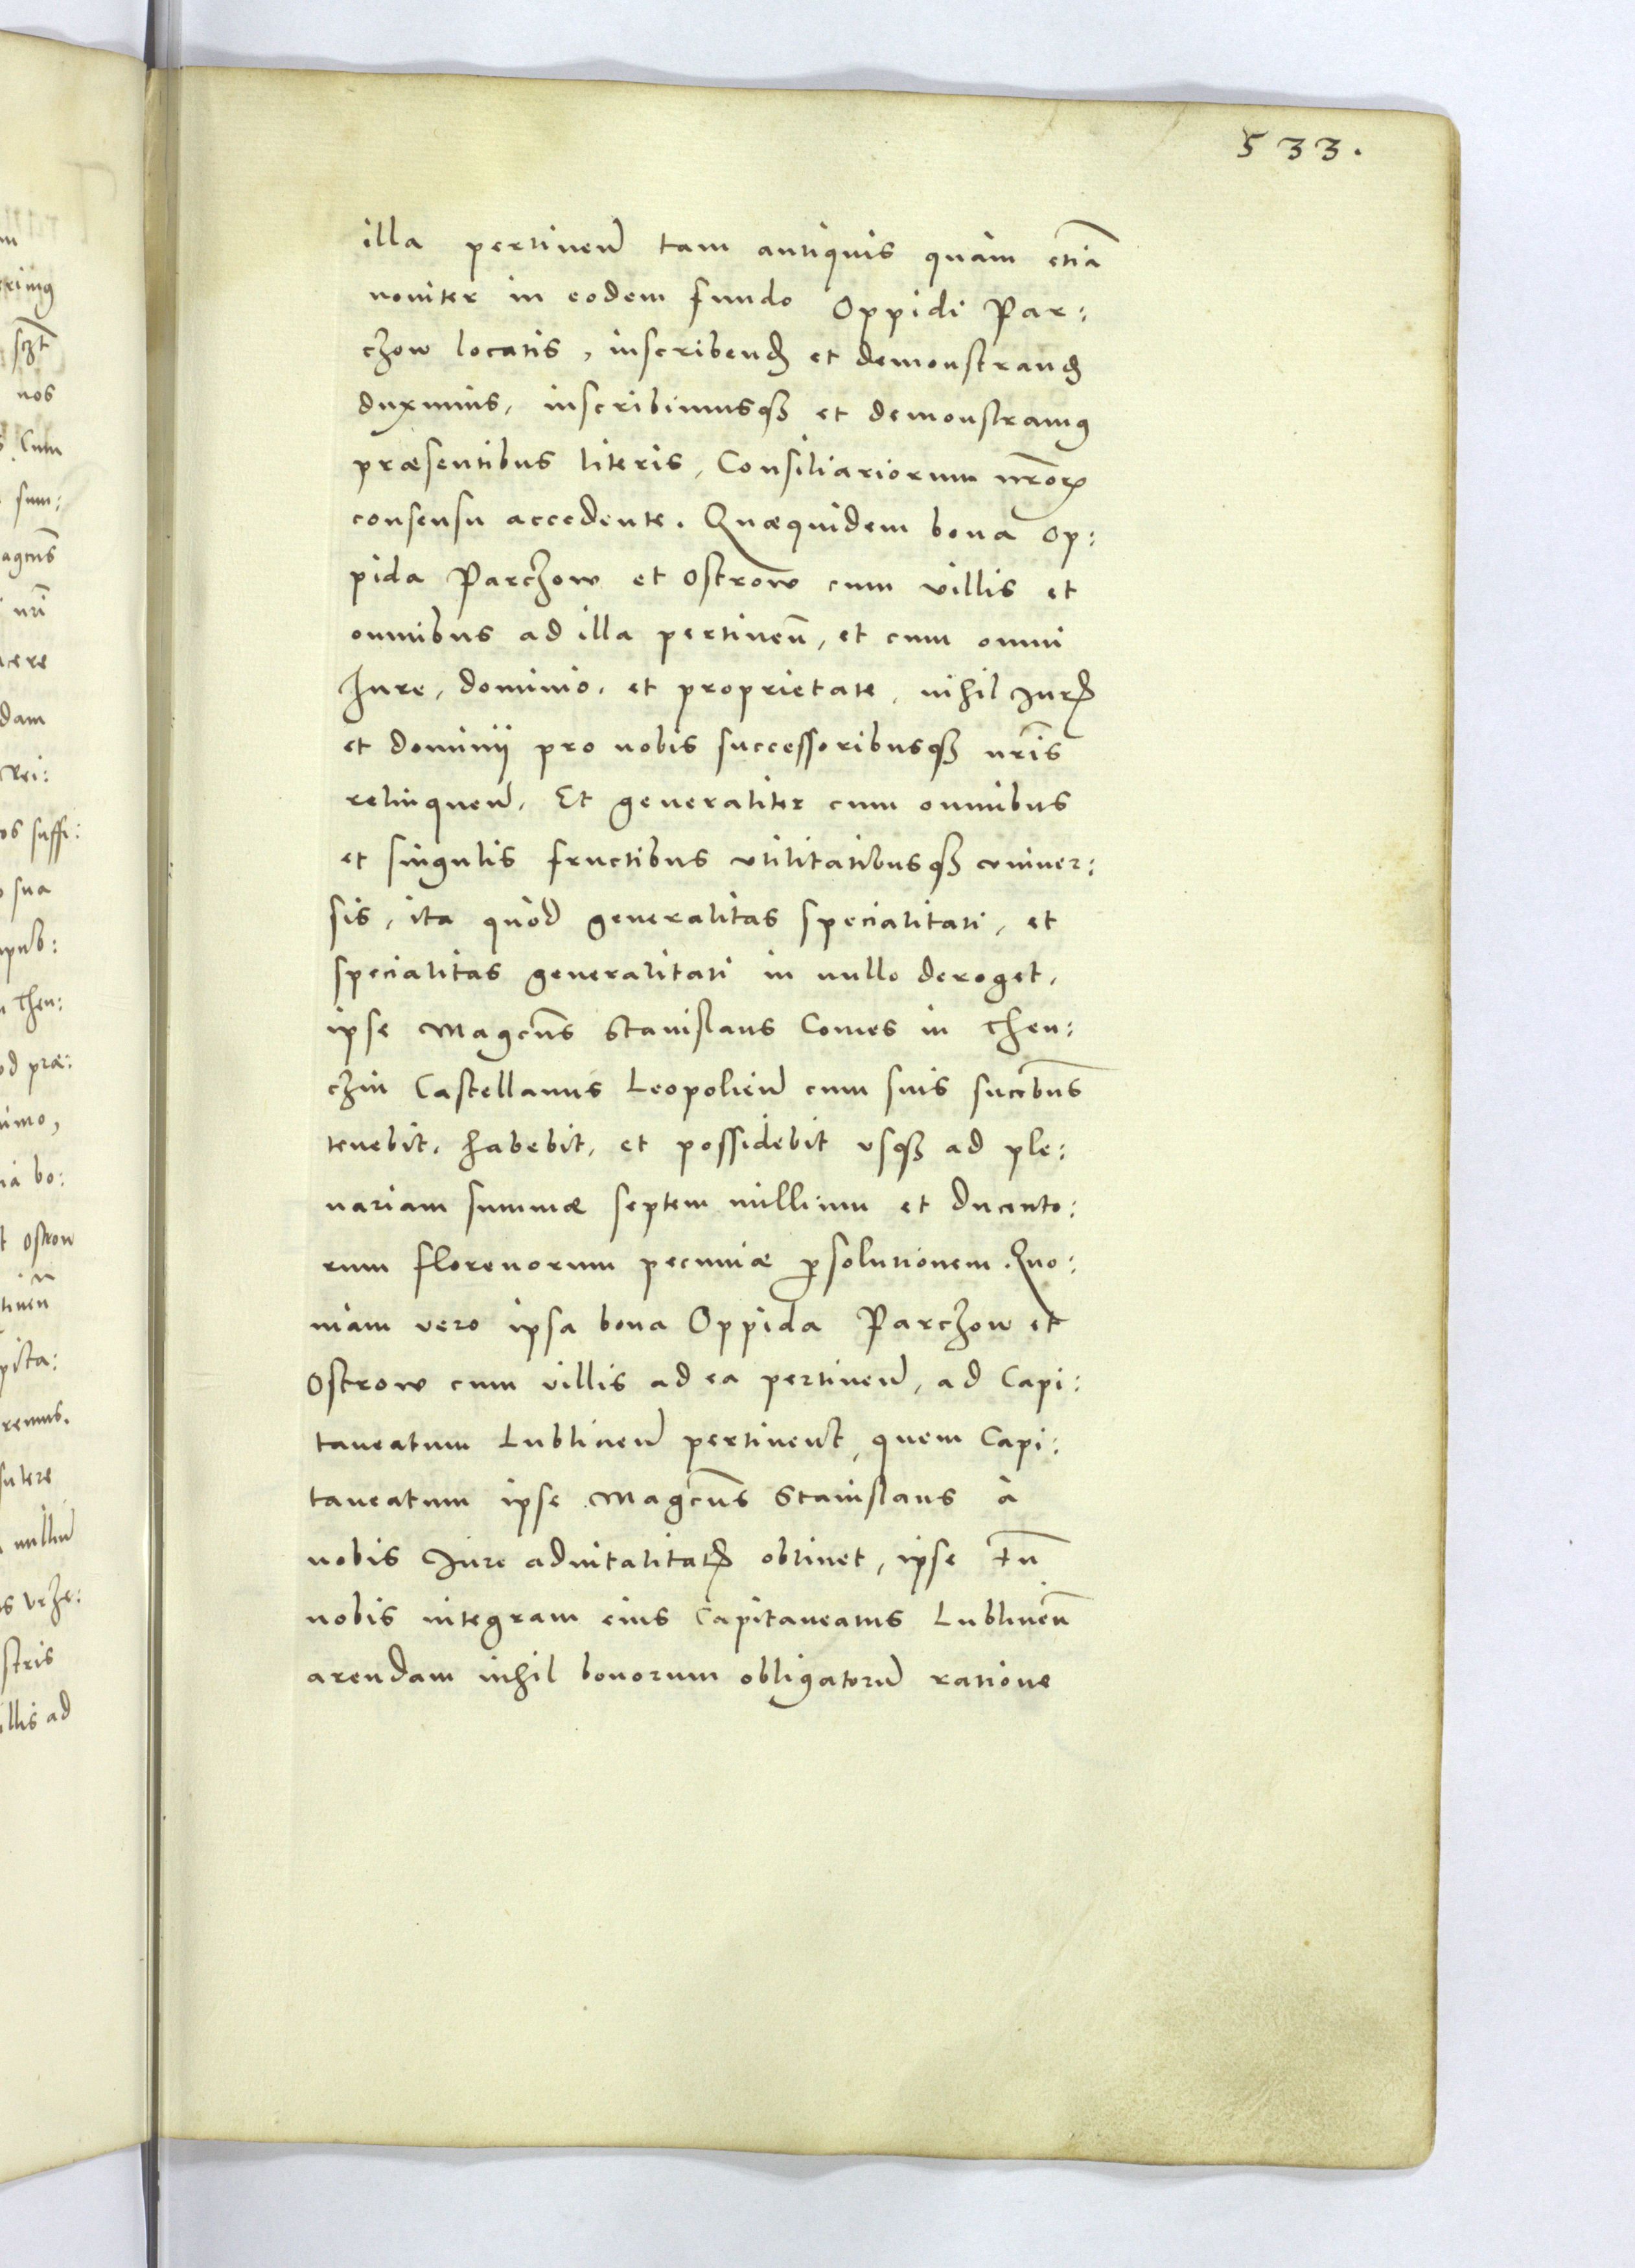 533.
illa pertineñ tam antiquis quàm etiã
noviter in eodem fundo Oppidi Par:
czow locatis, inscribenđ et demonstranđ
duximus, inscribimusqꝫ et demonstramꝰ
præsentibus literis, Consiliariorum nr̃orꝝ
consensu accedente. Quæquidem bona Op:
pida Parczow et Ostrow cum villis et
omnibus ad illa pertineñ, et cum omni
Jure, dominio, et proprietate, nihil Jurꝭ
et dominij pro nobis successoribusqꝫ nr̃is
relinqueñ. Et generaliter cum omnibus
et singulis fructibus vtilitatibusqꝫ vniver:
sis, ita quòd generalitas specialitati, et
specialitas generalitati in nullo deroget,
ipse Magcũs Stanislaus Comes in Then:
czin Castellanus Leopolieñ cum suis succibũs
tenebit, habebit, et possidebit vsqꝫ ad ple:
nariam summæ septem millium et Ducento:
rum florenorum pecuniæ ꝑsolutionem. Quo:
niam vero ipsa bona Oppida Parczow et
Ostrow cum villis ad ea pertineñ, ad Capi:
taneatum Lublineñ pertinent, quem Capi:
taneatum ipse Magcũs Stanislaus à
nobis Jure advitalitatꝭ obtinet, ipse tñ
nobis integram eius Capitaneatus Lublineñ
arendam nihil bonorum obligatorũ ratione